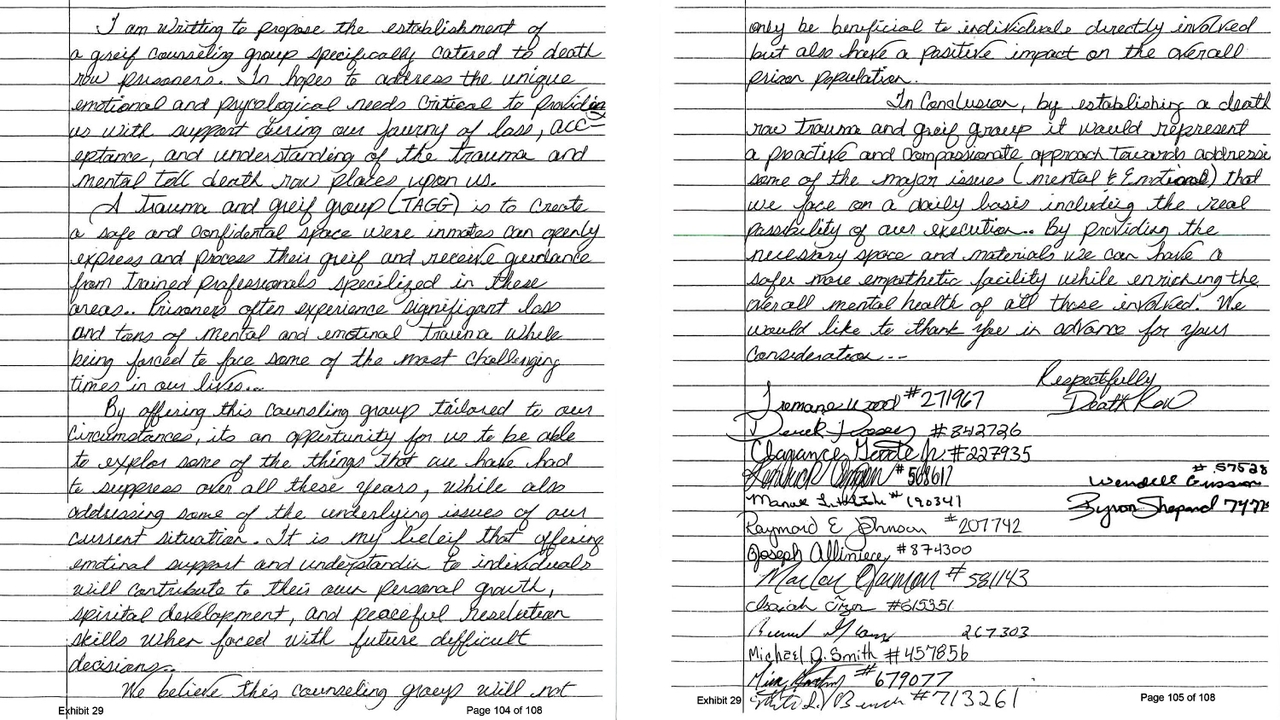 I am writting to propose the establishment of
a greif counseling group specifically catered to death
row prisoners. In hopes to address the unique
emotional and psycological needs critical to providing
us with support during our journy of loss, acc-
eptance, and understanding of the trauma and
mental toll death row places upon us.
A trauma and greif group (TAGG) is to create
a safe and confidental space were inmates can openly
express and process their greif and receive guidance
from trained professionals specilized in these
areas.. Prisoners often experience signifigant loss
and tons of mental and emotinal trauma while
being forced to face some of the most challenging
times in our lives...
By offering this counsling group tailored to our
circumstances, its an oppurtunity for us to be able
to explor some of the things that we have had
to suppress over all these years, while also
addressing some of the underlying issues of our
current situation. It is my beleif that offering
emotinal support and understandin to individuals
will contribute to their own personal growth,
spirital development, and peaceful resolution
skills when faced with future difficult
decisions..
We believe this counseling group will not
Exhibit 29
Page 104 of 108
only be beneficial to individuals directly involved
but also have a positive impact on the overall
prison population.
In Conclusion, by establishing a death
row trauma and greif group it would represent
a proactive and compassionate approach towards addressi
some of the major issues (mental & Emotional) that
we face on a daily basis including the real
possibility of our execution.. By providing the
necessary space and materials we can have a
safer more empathetic facility while enriching the
overall mental health of all those involved. We
would like to thank you in advance for your
consideration...
Respectfully
Death Row
Tremane Wood #271967
Derek #842726
Clarance Jr #227935
#568617
#190341
Raymond E Johnson #207742
Joseph #874300
#581143
Isaiah #615351
267303
Michael D. Smith #457856
#679077
Bench #713261
#57528
Wendell Grissom
Byron Shepard
Exhibit 29
Page 105 of 108